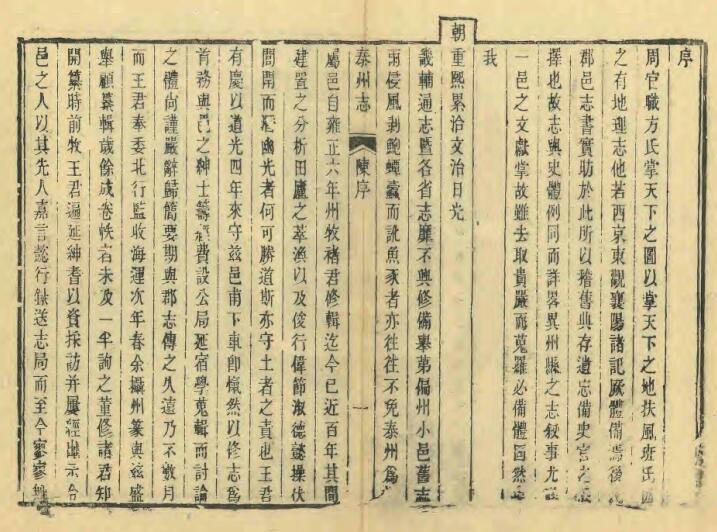 序
周官職方氏掌天下之圖以掌天下之地扶風班氏因
之有地理志他若西京東觀襄陽諸記厥體備焉後代
郡邑志書實昉於此所以稽舊典存遺忘備史官之採
擇也故志與史體例同而詳畧異州縣之志敍事尤詳
一邑之文獻掌故雖去取貴嚴而蒐羅必備體固然也
我
朝重熙累洽文治日光
畿輔通志暨各省志靡不興修備舉第偏州小邑舊志
雨侵風剥鮑蟫蠹而訛魚豕者亦往往不免泰州爲
泰州志
陳序
一
屬邑自雍正六年州牧褚君修輯迄今已近百年其間
建置之分析田廬之萃渙以及俊行偉節淑德懿操伏
閭閈而潛幽光者何可勝道斯亦守土者之責也王君
有慶以道光四年來守兹邑甫下車即慨然以修志爲
首務與邑之紳士籌經費設公局延宿學蒐輯而討論
之體尚謹嚴辭歸簡要期與郡志傳之久遠乃不數月
而王君奉委北行監收海運次年春余攝州篆與兹盛
舉顧纂輯歲餘成卷帙者未及一半詢之董修諸君知
開纂時前牧王君遍延紳耆以資採訪并屢經出示合
邑之人以其先人嘉言懿行錄送志局而至今寥寥